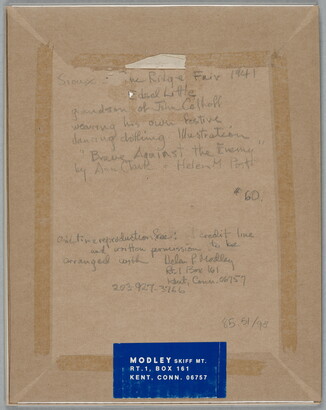 Sioux Pine Ridge Fair 1941
Little
grandson of Jim
wearing his own festive
dancing clothing Illustration
"Brave Against the Enemy"
by Ann Clark - Helen M Post
$60.
One time reproduction fee: credit line
and written permission to be
arranged with Helen P Modley
Rt. 1 Box 161
Kent, Conn. 06757
203-927-
MODLEY SKIFF MT.
RT. 1, BOX 161
KENT, CONN. 06757